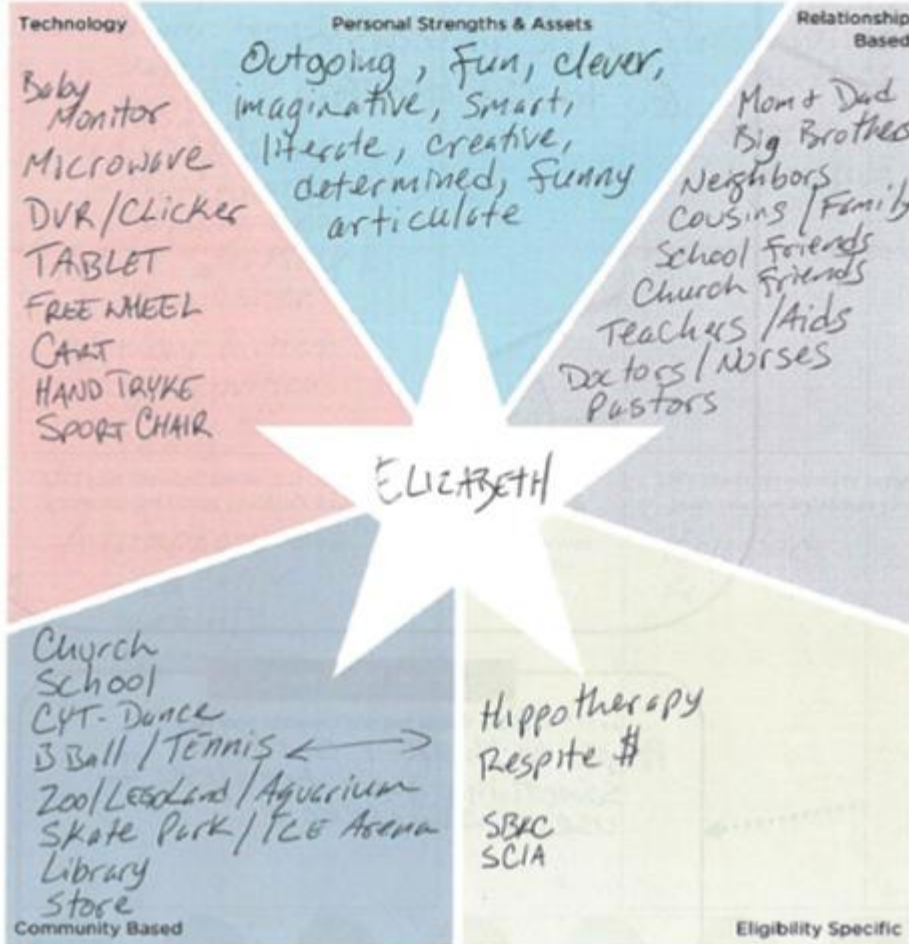 Technology
Baby
Monitor
Microwave
DVR/Clicker
TABLET
FREE WHEEL
CART
HAND TRYKE
SPORT CHAIR
Personal Strengths & Assets
Outgoing, Fun, clever,
imaginative, Smart,
literate, creative,
determined, funny
articulate
Relationship
Based
Mom & Dad
Big Brother
Neighbors
Cousins / Family
School Friends
Church Friends
Teachers / Aids
Doctors / Nurses
Pastors
ELIZABETH
Church
School
CYT-Dance
BBall / Tennis
Zoo/LEGOLand/Aquarium
Skate Park / ICE Arena
Library
Store
Community Based
Hippotherapy
Respite $
SBRC
SCIA
Eligibility Specific